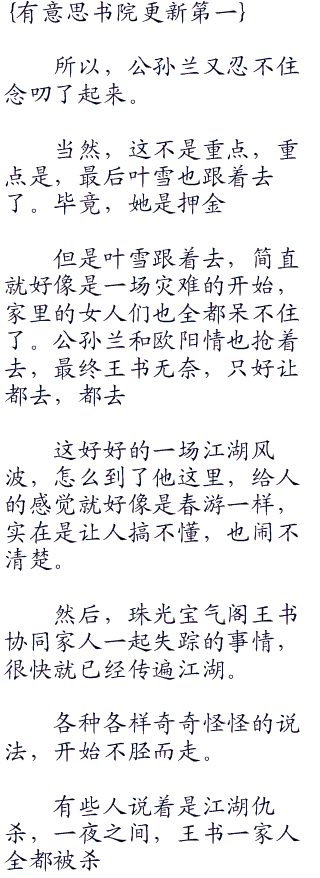 {有意思书院更新第一}
所以，公孙兰又忍不住
念叨了起来。
当然，这不是重点，重
点是，最后叶雪也跟着去
了。毕竟，她是押金
但是叶雪跟着去，简直
就好像是一场灾难的开始，
家里的女人们也全都呆不住
了。公孙兰和欧阳情也抢着
去，最终王书无奈，只好让
都去，都去
这好好的一场江湖风
波，怎么到了他这里，给人
的感觉就好像是春游一样，
实在是让人搞不懂，也闹不
清楚。
然后，珠光宝气阁王书
协同家人一起失踪的事情，
很快就已经传遍江湖。
各种各样奇奇怪怪的说
法，开始不胫而走。
有些人说着是江湖仇
杀，一夜之间，王书一家人
全都被杀